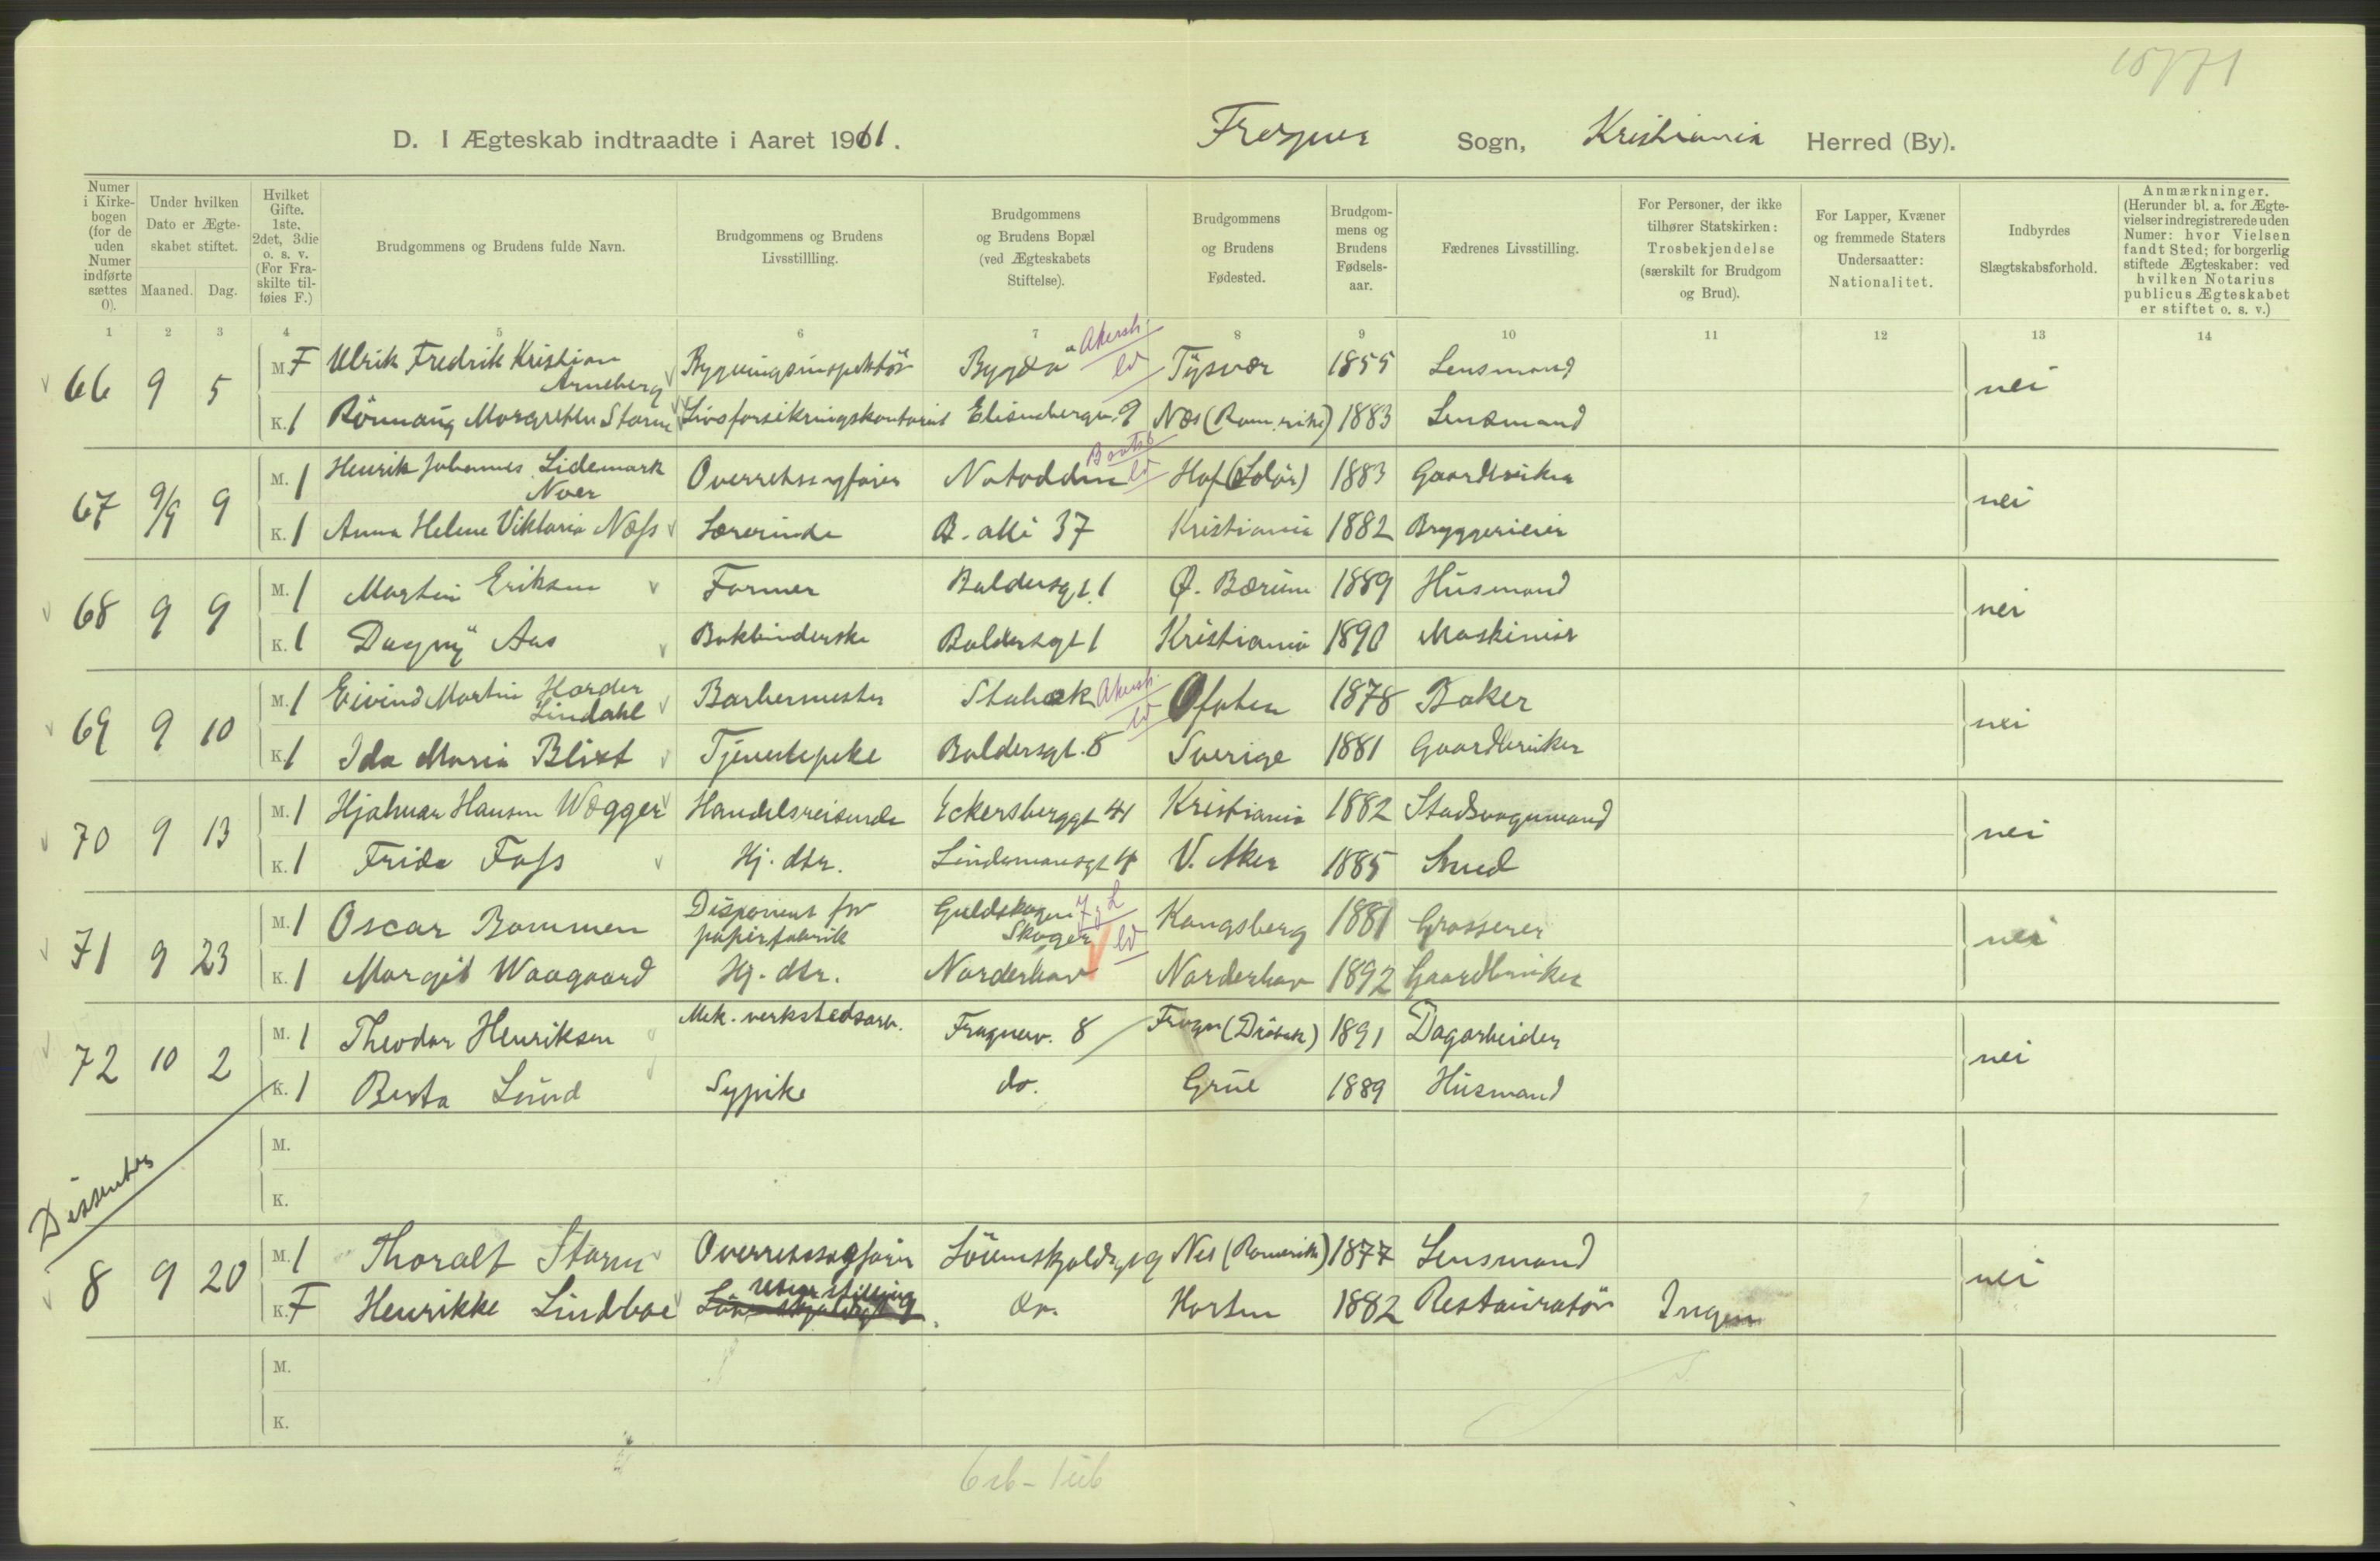 10771
D. I Ægteskab indtraadte i Aaret 1911. Frogner Sogn, Kristiania Herred (By).
Numer i Kirke-bogen (for de uden Numer indførte sættes 0).
Under hvilken Dato er Ægte-skabet stiftet.
Maaned. Dag.
Hvilket Gifte. 1ste. 2det, 3die o. s. v. (For Fra-skilte til-føies F.)
Brudgommens og Brudens fulde Navn.
Brudgommens og Brudens Livsstillling.
Brudgommens og Brudens Bopæl (ved Ægteskabets Stiftelse).
Brudgommens og Brudens Fødested.
Brudgom-mens og Brudens Fødsels-aar.
Fædrenes Livsstilling.
For Personer, der ikke tilhører Statskirken: Trosbekjendelse (særskilt for Brudgom og Brud).
For Lapper, Kvæner og fremmede Staters Undersaatter: Nationalitet.
Indbyrdes Slægtskabsforhold.
Anmærkninger. (Herunder bl. a. for Ægte-vielser indregistrerede uden Numer: hvor Vielsen fandt Sted; for borgerlig stiftede Ægteskaber: ved hvilken Notarius publicus Ægteskabet er stiftet o. s. v.)
1 2 3 4 5 6 7 8 9 10 11 12 13 14
66 9 5 M. F Ulrik Fredrik Kristian Arneberg Bygningsinspektör Bygdø Akersh. ld Tysvær 1855 Lensmand nei
K. 1 Rönnaug Margrethe Storm Livsforsikringskontorist Elisenbergv. 9 Næs (Rom.rike) 1883 Lensmand
67 9/9 9 M. 1 Henrik Johannes Lidemark Noer Overretssagfører Notodden Bratsb ld Hof (Solör) 1883 Gaardbruker nei
K. 1 Anna Helene Viktoria Næss Lærerinde B. alle 37 Kristiania 1882 Bryggerieier
68 9 9 M. 1 Martin Eriksen Former Baldersgt. 1 Ø. Bærum 1889 Husmand nei
K. 1 Dagny Aas Bokbinderske Baldersgt 1 Kristiania 1890 Maskinist
69 9 10 M. 1 Eivind Martin Harder Lindahl Barbermester Stabæk Akersh. ld Ofoten 1878 Baker nei
K. 1 Ida Maria Blixt Tjenestepike Baldersgt. 8 Sverige 1881 Gaardbruker
70 9 13 M. 1 Hjalmar Hansen Wogger Handelsreisende Eckersberggt 41 Kristiania 1882 Stadsvognmand nei
K. 1 Frida Foss Hj. dtr. Lindemansgt 4 V. Aker 1885 Smed
71 9 23 M. 1 Oscar Bommen Disponent for papirfabrik Guldskogen Skoger J. L ld Kongsberg 1881 Grosserer nei
K. 1 Margit Waagaard Hj. dtr. Norderhov Norderhov 1892 Gaardbruker
72 10 2 M. 1 Theodor Henriksen Mek. verkstedsarb. Frognerv. 8 Frogn (Dröbak) 1891 Dagarbeider nei
K. 1 Berta Lund Sypike do. Grue 1889 Husmand
M.
K.
Dissenter
8 9 20 M. 1 Thoralf Storm Overretssagfører Lövenskjoldsgt 9 Nes (Romerike) 1877 Lensmand nei
K. F Henrikke Lindboe uten stilling Lövenskjoldsgt 9 do. Horten 1882 Restauratör Ingen
M.
K.